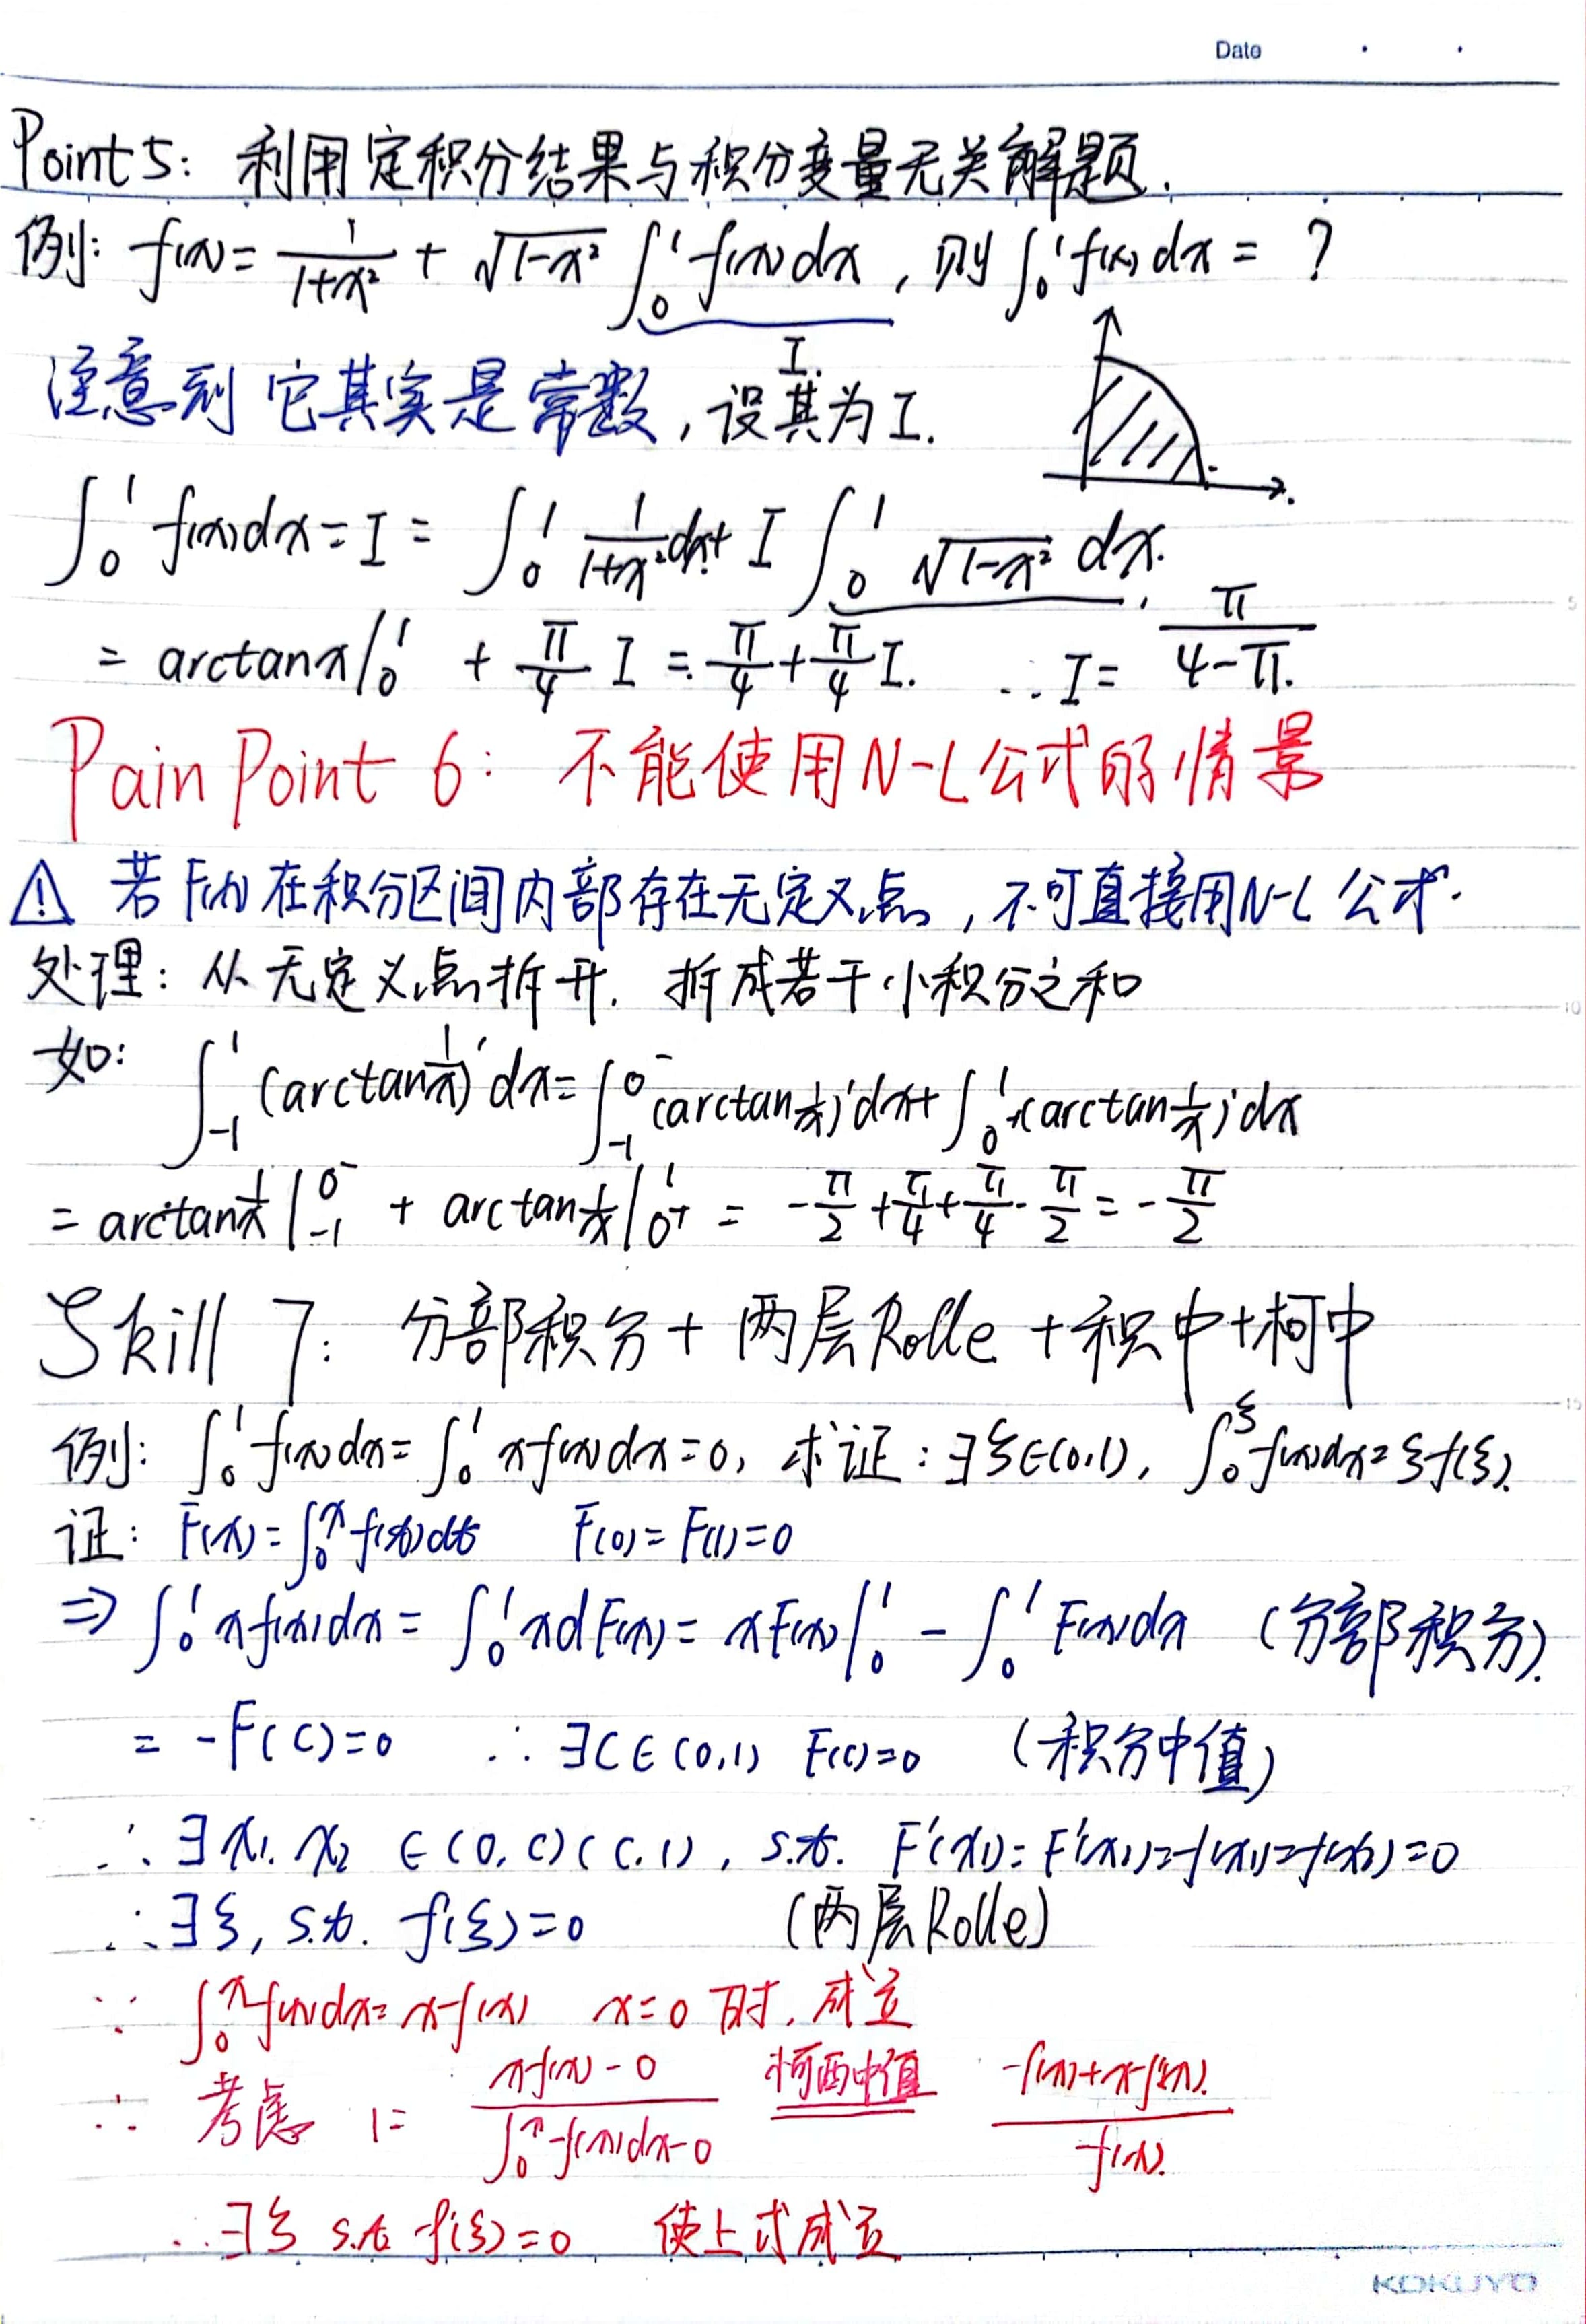 Date
Point 5: 利用定积分结果与积分变量无关解题.
例: f(x)= 1/(1+x²) + √(1-x²) ∫₀¹ f(x)dx , 则 ∫₀¹ f(x)dx = ?
I.
注意到 它其实是常数, 设其为I.
∫₀¹ f(x)dx = I = ∫₀¹ 1/(1+x²) dx + I ∫₀¹ √(1-x²) dx.
= arctanx|₀¹ + π/4 I = π/4 + π/4 I. ∴ I = π/(4-π).
Pain Point 6: 不能使用N-L公式的情景
⚠ 若 F(x) 在积分区间内部存在无定义点, 不可直接用N-L 公式.
处理: 从无定义点拆开. 拆成若干小积分之和
如: ∫₋₁¹ (arctan 1/x)' dx = ∫₋₁^0⁻ (arctan 1/x)'dx + ∫₀₊¹ (arctan 1/x)'dx
= arctan 1/x |₋₁^0⁻ + arctan 1/x |₀₊¹ = -π/2 + π/4 + π/4 - π/2 = -π/2
Skill 7: 分部积分 + 两层Rolle + 积中+柯中
例: ∫₀¹ f(x)dx = ∫₀¹ xf(x)dx = 0, 求证: ∃ξ∈(0,1), ∫₀^ξ f(x)dx = ξf(ξ).
证: F(x) = ∫₀^x f(t)dt F(0)=F(1)=0
⇒ ∫₀¹ xf(x)dx = ∫₀¹ xdF(x) = xF(x)|₀¹ - ∫₀¹ F(x)dx (分部积分).
= -F(C)=0 ∴ ∃C∈(0,1) F(c)=0 (积分中值)
∴ ∃ x₁, x₂ ∈(0,c)(c,1), s.t. F'(x₁)=F'(x₂)=f(x₁)=f(x₂)=0
∴ ∃ξ, s.t. f'(ξ)=0 (两层Rolle)
∵ ∫₀^x f(x)dx = xf(x) x=0 时, 成立
∴ 考虑 1 = (xf(x)-0)/(∫₀^x f(x)dx-0) 柯西中值 (f(x)+xf'(x))/f(x).
∴ ∃ξ s.t. f'(ξ)=0 使上式成立
KOKUYO